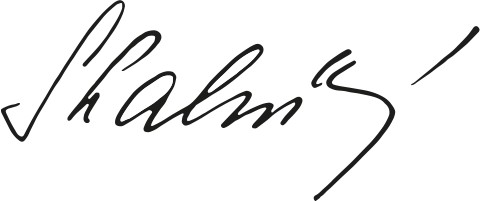 Skalický